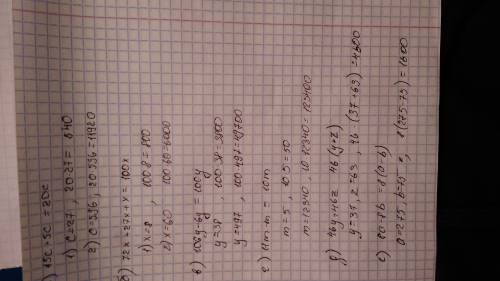 ) 15c + 5c = 20c
1) c = 27, 20·27 = 540
2) c = 596, 20·596 = 11920
б) 72x + 27x + x = 100x
1) x = 8, 100·8 = 800
2) x = 60, 100·60 = 6000
в) 106y - 6y = 100y
y = 38, 100·38 = 3800
y = 497, 100·497 = 49700
г) 11m - m = 10m
m = 5, 10·5 = 50
m = 12340, 10·12340 = 123400
д) 46y + 46z 46(y+z)
y = 37, z = 63, 46·(37+63) = 4600
е) 8a - 8b = 8(a-b)
a = 275, b = 75, 8(275-75) = 1600